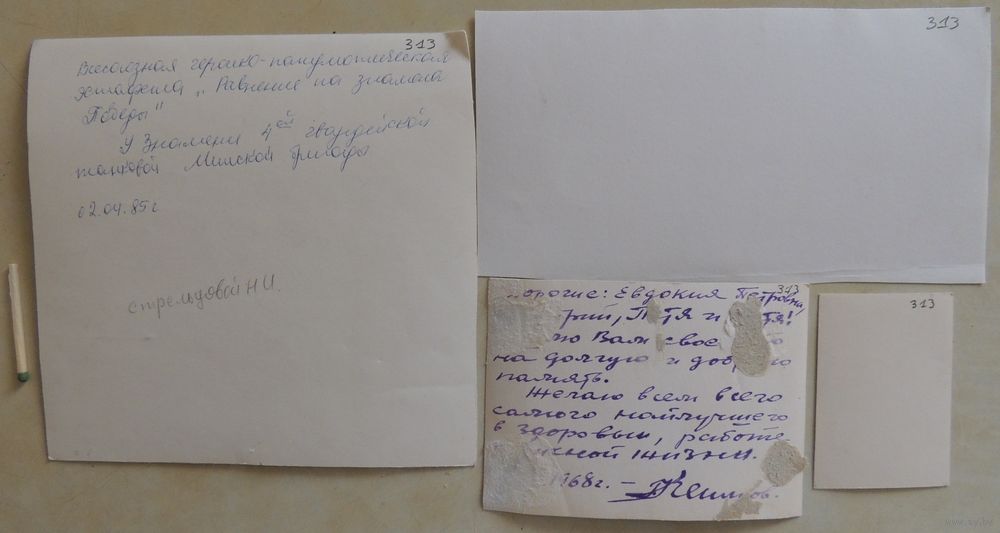 313
Всесоюзная героико-патриотическая
эстафета „Равнение на знамена
Победы"
У Знамени 4ой гвардейской
танковой Минской бригады
02.04.85г
стрельцовой Н И.
313
313
Дорогие: Евдокия Петровна,
Петя и
Вам свое
на долгую и добрую
память.
Желаю всем всего
самого наилучшего
в здоровьи, работе
жизни.
1968г. –
313